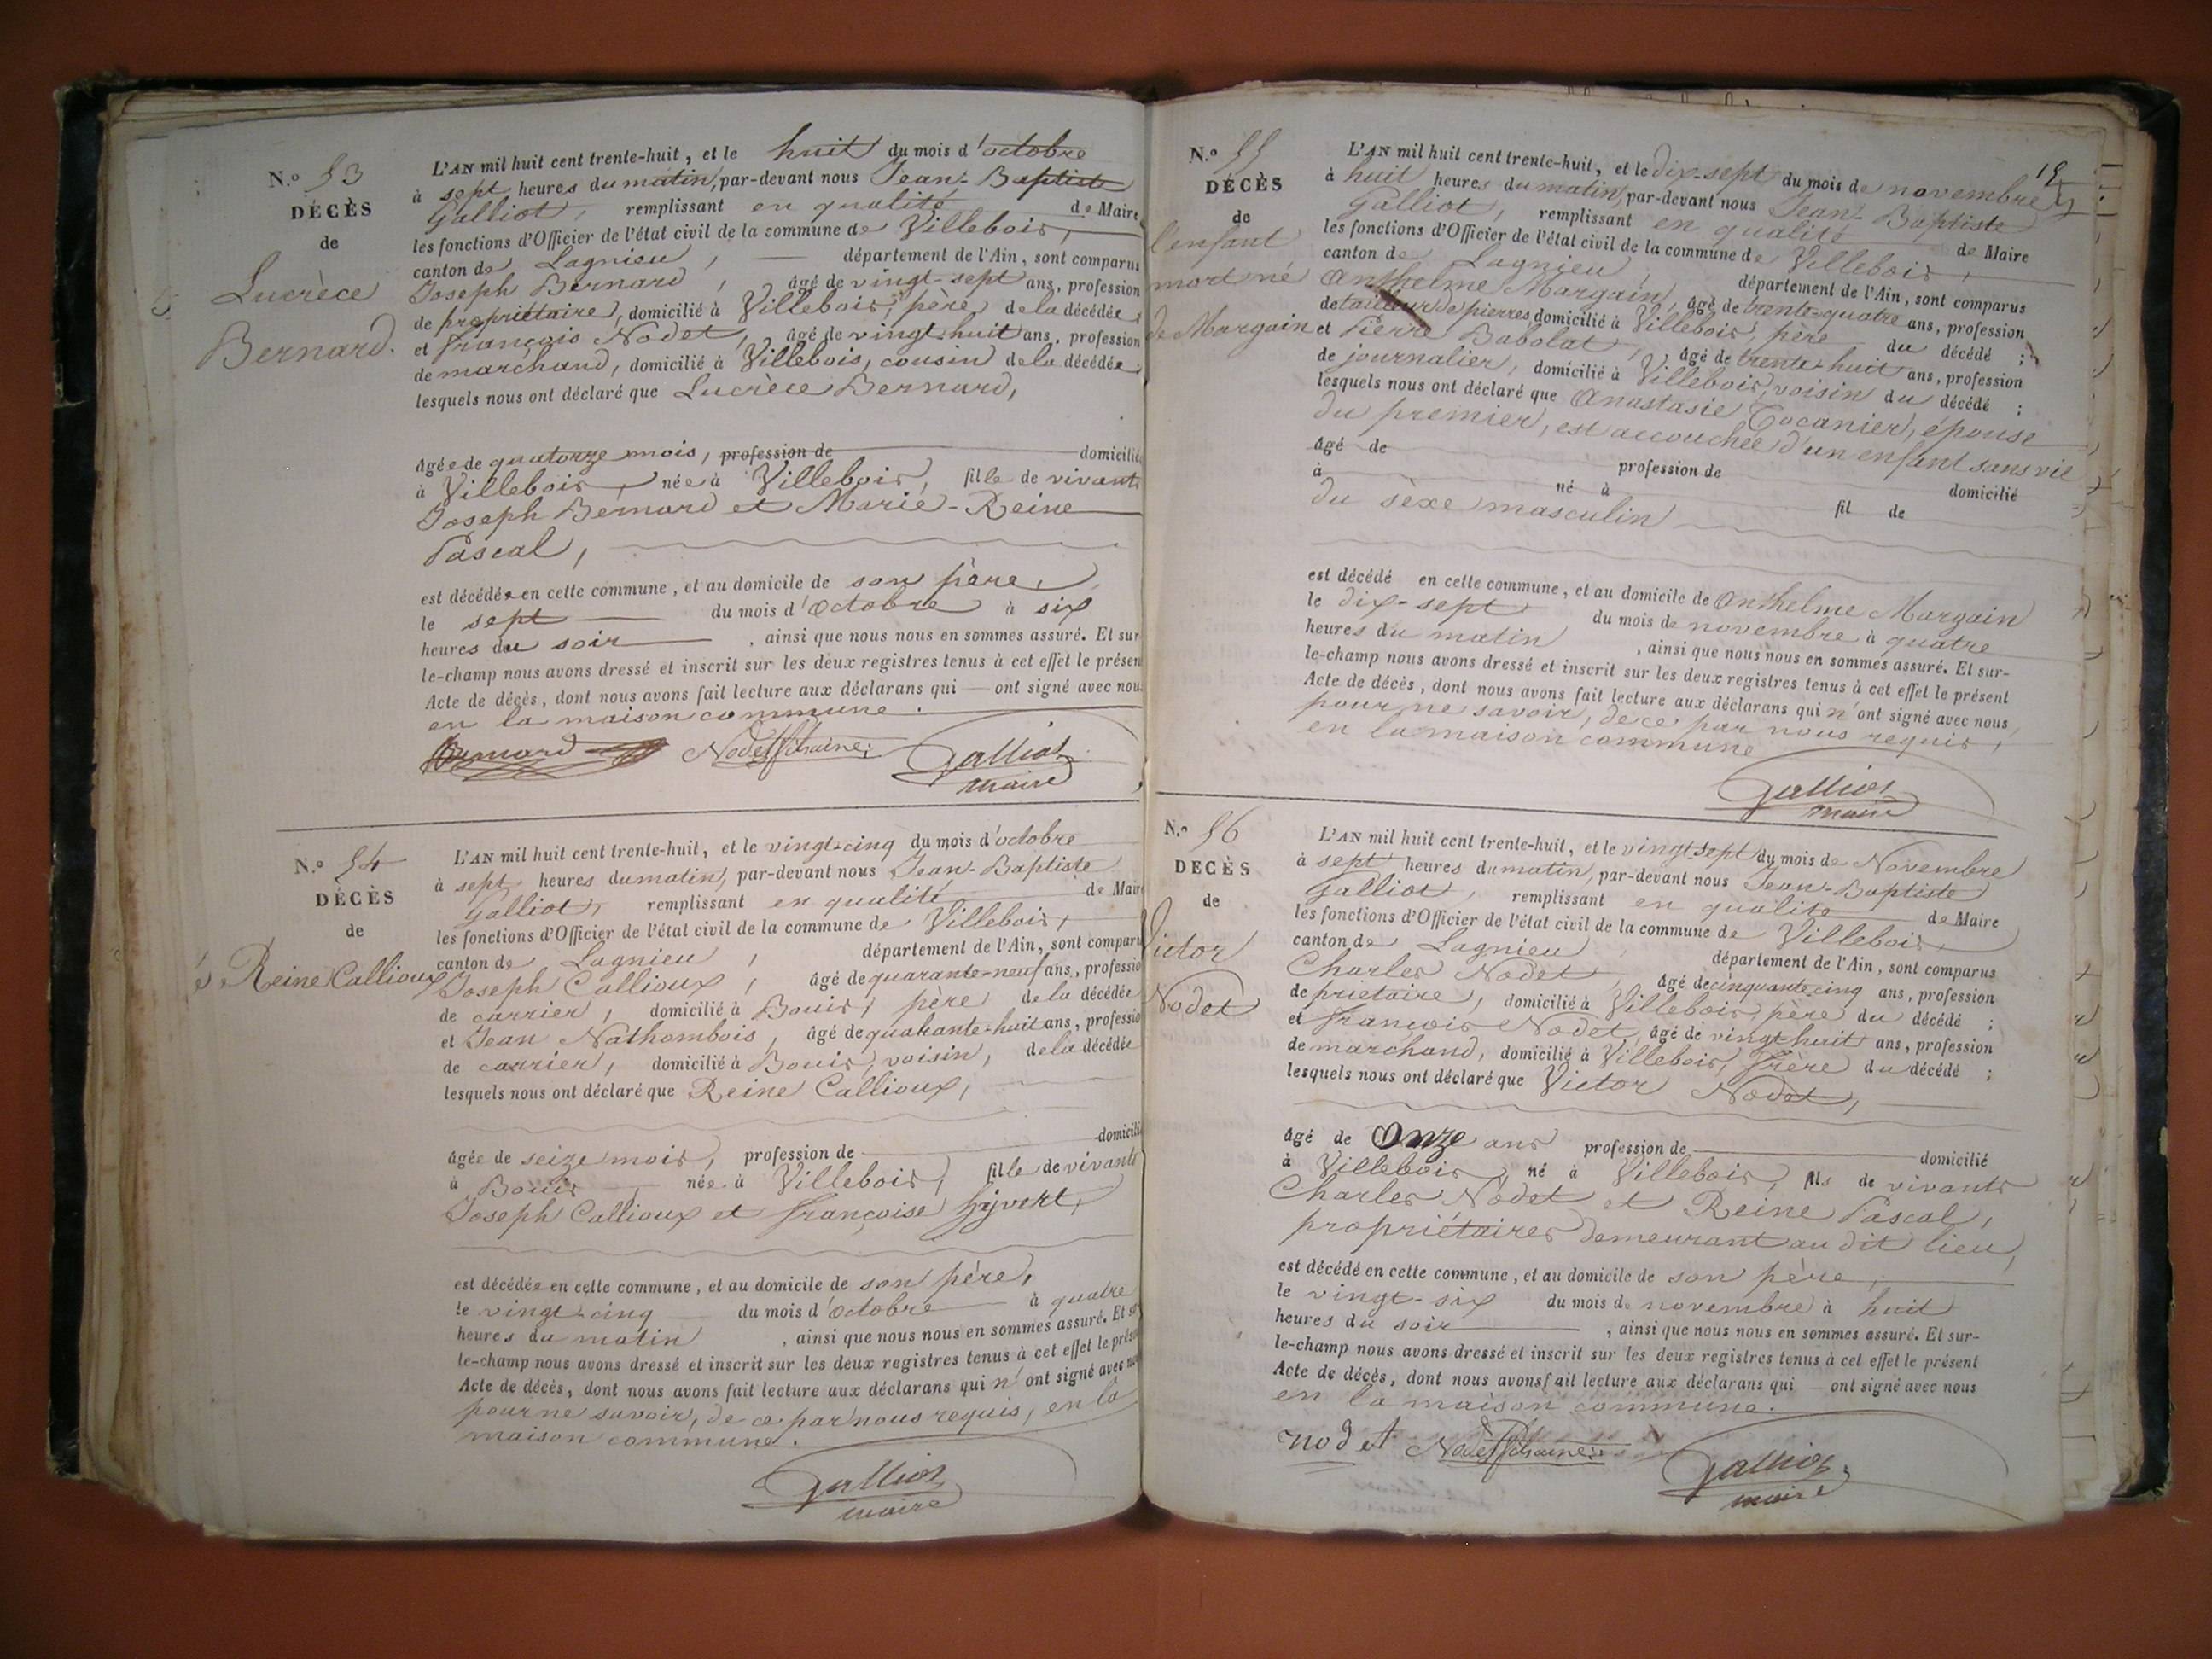 N.o 53
DÉCÈS
de
Lucrèce
Bernard.
L'AN mil huit cent trente-huit, et le huit du mois d'octobre
à sept heures du matin, par-devant nous Jean-Baptiste
Galliot, remplissant en qualité de Maire
les fonctions d'Officier de l'état civil de la commune de Villebois,
canton de Lagnieu, département de l'Ain, sont comparus
Joseph Bernard, âgé de vingt-sept ans, profession
de propriétaire, domicilié à Villebois, père de la décédée;
et françois Nodet, âgé de vingt-huit ans, profession
de marchand, domicilié à Villebois, cousin de la décédée;
lesquels nous ont déclaré que Lucrèce Bernard,
âgée de quatorze mois, profession de domicilié
à Villebois, née à Villebois, fille de vivants
Joseph Bernard et Marie-Reine
Pascal,
est décédée en cette commune, et au domicile de son père,
le sept du mois d'octobre à six
heures du soir, ainsi que nous nous en sommes assuré. Et sur-
le-champ nous avons dressé et inscrit sur les deux registres tenus à cet effet le présen
Acte de décès, dont nous avons fait lecture aux déclarans qui — ont signé avec nou
en la maison commune.
Bernard Nodet Galliot
maire
N.o 54
DÉCÈS
de
Reine Callioux
L'AN mil huit cent trente-huit, et le vingt-cinq du mois d'octobre
à sept heures du matin, par-devant nous Jean-Baptiste
Galliot, remplissant en qualité de Mair
les fonctions d'Officier de l'état civil de la commune de Villebois,
canton de Lagnieu, département de l'Ain, sont comparu
Joseph Callioux, âgé de quarante-neuf ans, professio
de carrier, domicilié à Bouis, père de la décédée
et Jean Nathombois, âgé de quarante-huit ans, professio
de carrier, domicilié à Bouis, voisin, de la décédée
lesquels nous ont déclaré que Reine Callioux,
âgée de seize mois, profession de domicili
à Bouis, née à Villebois, fille de vivants
Joseph Callioux et françoise hyvert,
est décédée en cette commune, et au domicile de son père,
le vingt-cinq du mois d'octobre à quatre
heures du matin, ainsi que nous nous en sommes assuré. Et su
le-champ nous avons dressé et inscrit sur les deux registres tenus à cet effet le prése
Acte de décès, dont nous avons fait lecture aux déclarans qui n'ont signé avec no
pour ne savoir, de ce par nous requis, en la
maison commune.
Galliot
maire
15
N.o 55
DÉCÈS
de
l'enfant
mort né
de Margain
L'AN mil huit cent trente-huit, et le dix-sept du mois de novembre
à huit heures du matin, par-devant nous Jean-Baptiste
Galliot, remplissant en qualité de Maire
les fonctions d'Officier de l'état civil de la commune de Villebois,
canton de Lagnieu, département de l'Ain, sont comparus
Anthelme Margain, âgé de trente-quatre ans, profession
de tailleur de pierres, domicilié à Villebois, père du décédé;
et Pierre Babolat, âgé de trente-huit ans, profession
de journalier, domicilié à Villebois, voisin du décédé;
lesquels nous ont déclaré que Anastasie Cocanier, épouse
du premier, est accouchée d'un enfant sans vie
âgé de profession de domicilié
à né à fil de
du sèxe masculin
est décédé en cette commune, et au domicile de Anthelme Margain
le dix-sept du mois de novembre à quatre
heures du matin, ainsi que nous nous en sommes assuré. Et sur-
le-champ nous avons dressé et inscrit sur les deux registres tenus à cet effet le présent
Acte de décès, dont nous avons fait lecture aux déclarans qui n'ont signé avec nous,
pour ne savoir, de ce par nous requis,
en la maison commune
Galliot
maire
N.o 56
DÉCÈS
de
Victor
Nodet
L'AN mil huit cent trente-huit, et le vingt-sept du mois de Novembre
à sept heures du matin, par-devant nous Jean-Baptiste
Galliot, remplissant en qualité de Maire
les fonctions d'Officier de l'état civil de la commune de Villebois
canton de Lagnieu, département de l'Ain, sont comparus
Charles Nodet, âgé de cinquante-cinq ans, profession
de prietaire, domicilié à Villebois, père du décédé;
et françois Nodet, âgé de vingt-huit ans, profession
de marchand, domicilié à Villebois, frère du décédé;
lesquels nous ont déclaré que Victor Nodet,
âgé de Onze ans profession de domicilié
à Villebois, né à Villebois, fils de vivants
Charles Nodet et Reine Pascal,
propriétaires demeurant au dit lieu,
est décédé en cette commune, et au domicile de son père,
le vingt-six du mois de novembre à huit
heures du soir, ainsi que nous nous en sommes assuré. Et sur-
le-champ nous avons dressé et inscrit sur les deux registres tenus à cet effet le présent
Acte de décès, dont nous avons fait lecture aux déclarans qui — ont signé avec nous
en la maison commune.
nodet Nodet Galliot
maire